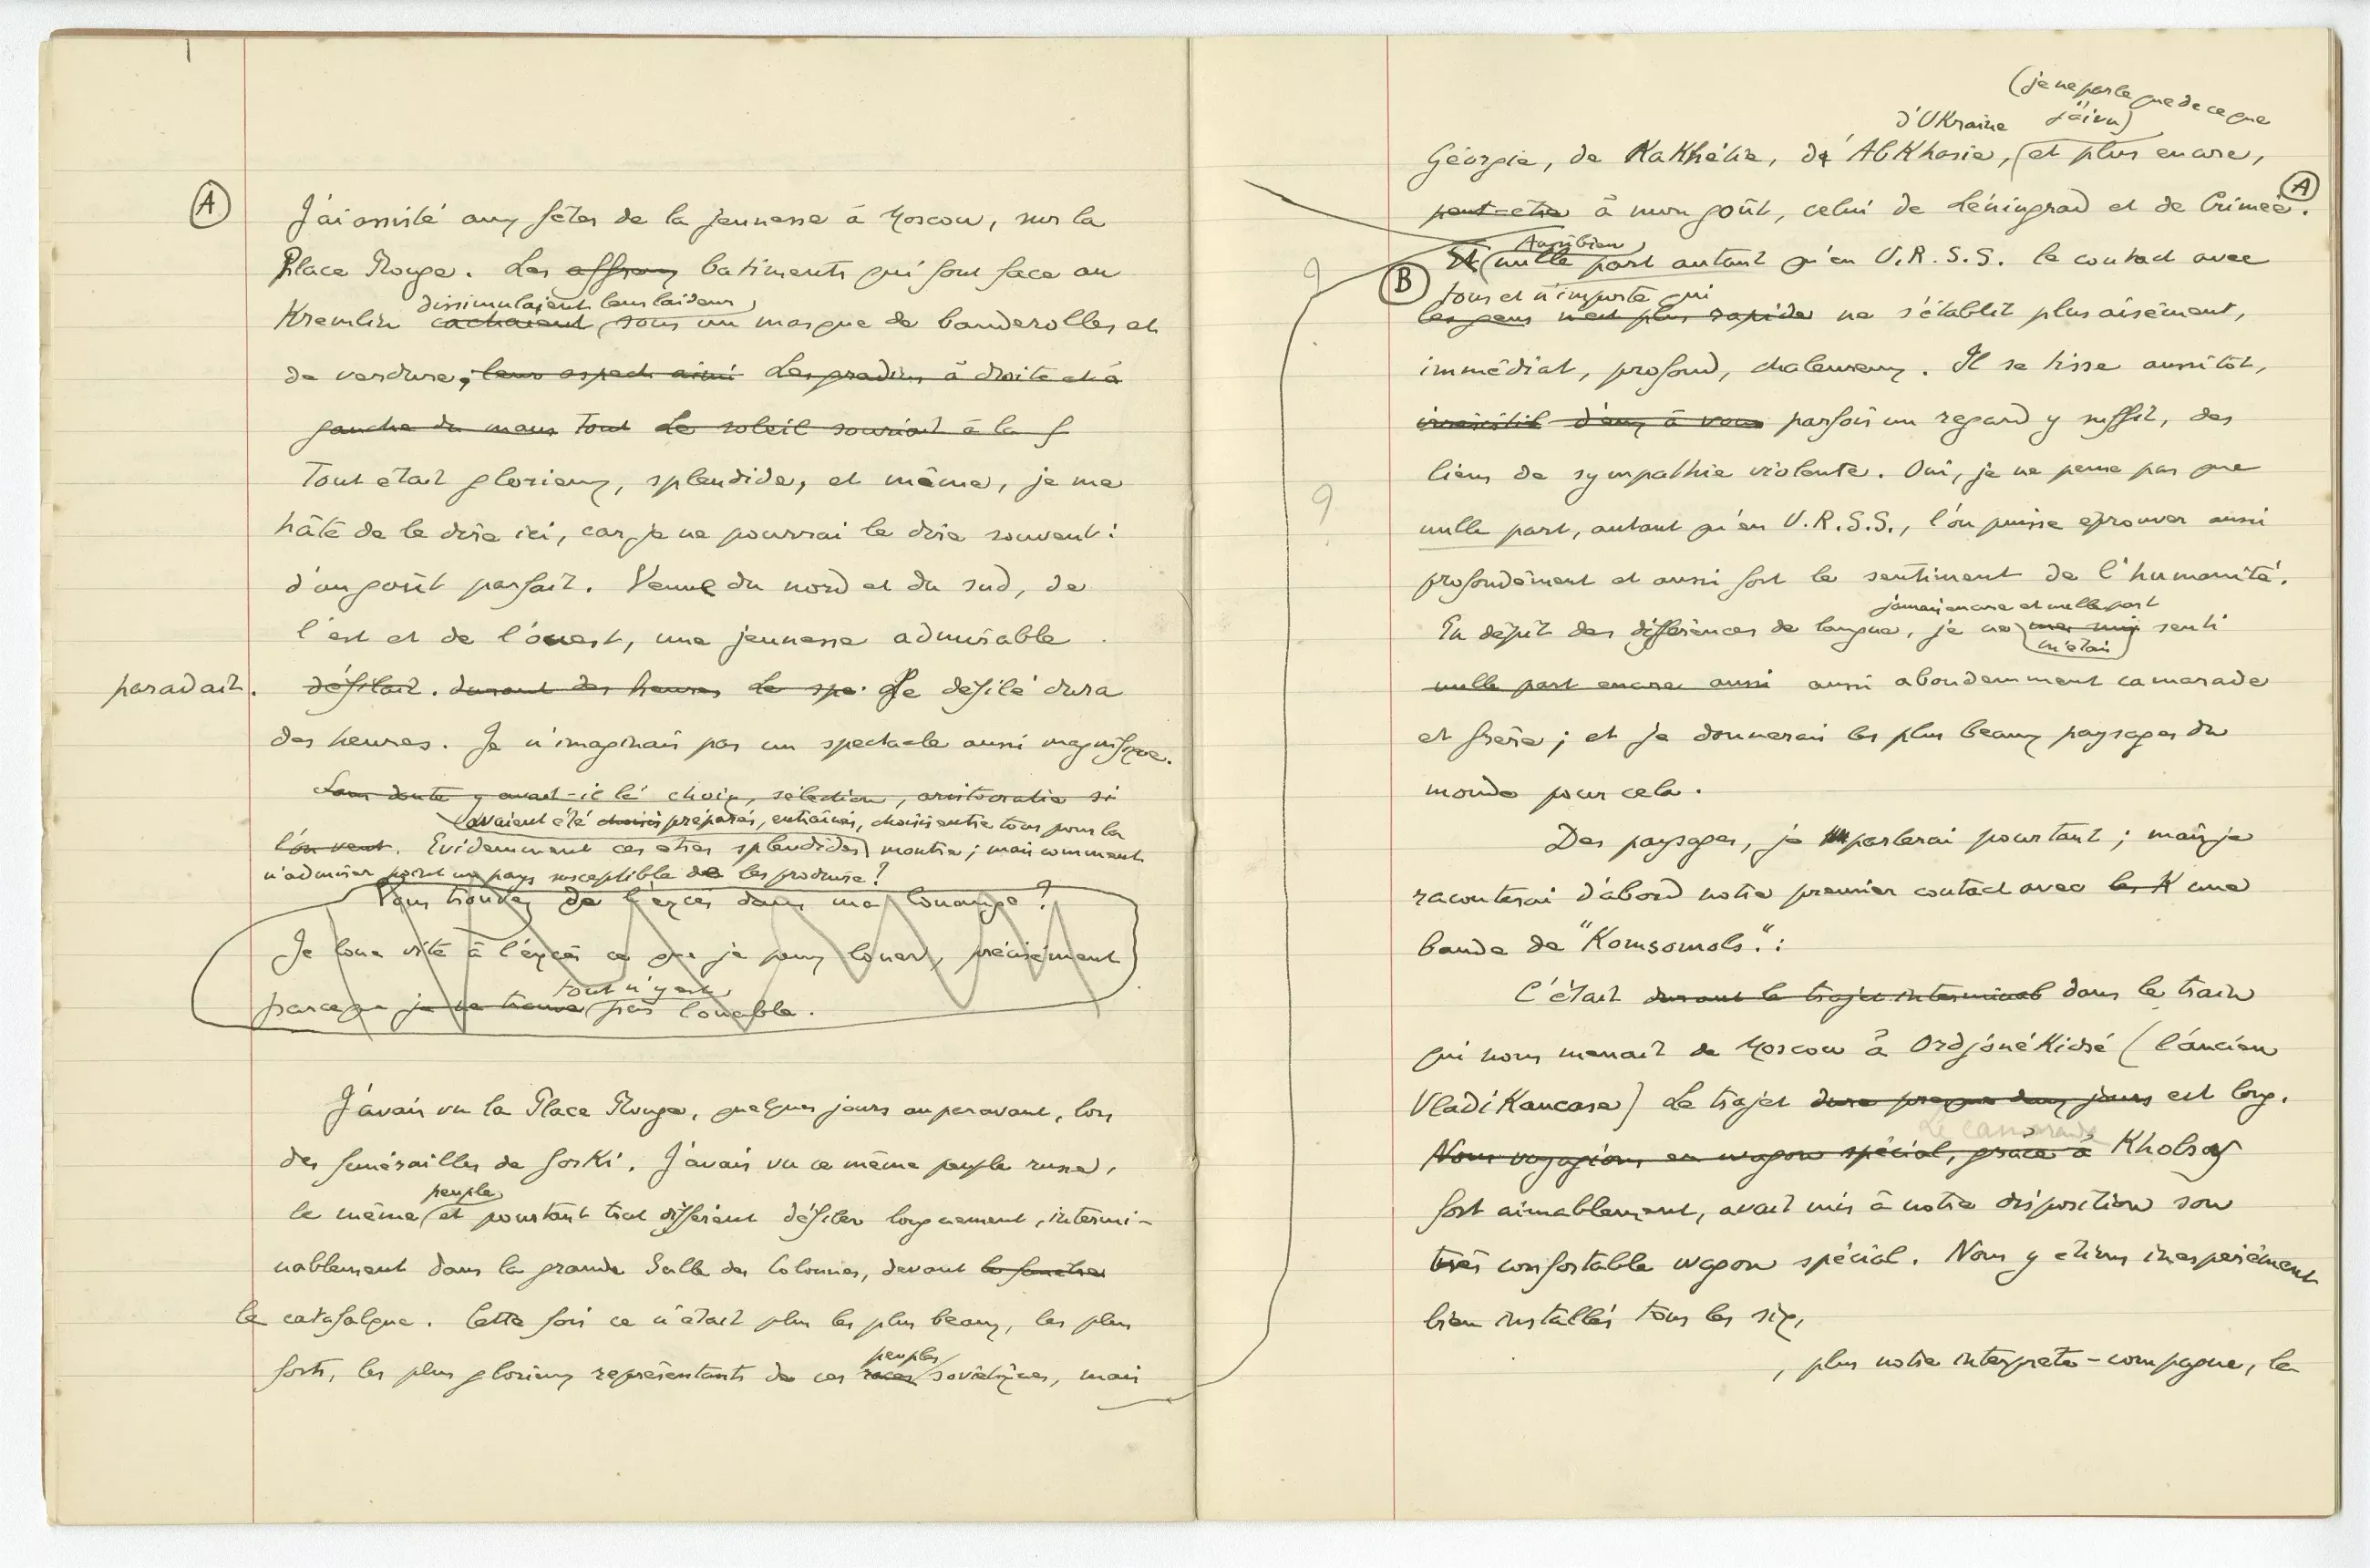 (A)
J'ai assisté aux fêtes de la jeunesse à Moscou, sur la
Place Rouge. Les affreux batiments qui font face au
dissimulaient leur laideur
Kremlin cachaient sous un masque de banderolles et
de verdure, leur aspect ainsi Les gradins à droite et à
gauche du maus Tout Le soleil souriait à la f
Tout était glorieux, splendide, et même, je me
hâte de le dire ici, car je ne pourrai le dire souvent :
d'un goût parfait. Venue du nord et du sud, de
l'est et de l'ouest, une jeunesse admirable
paradait. défilait. durant des heures Le spe. Le défilé dura
des heures. Je n'imaginais pas un spectacle aussi magnifique.
Sans doute y avait-il là choix, sélection, aristocratie si
avaient été choisis préparés, entraînés, choisis entre tous pour la
l'on veut. Evidemment ces êtres splendides montre ; mais comment
n'admirer point un pays susceptible de les produire ?
Vous trouvez de l'excès dans ma louange ?
Je loue vite à l'excès ce que je peux louer, précisément
tout n'y est
parceque je ne trouve pas louable.
J'avais vu la Place Rouge, quelques jours auparavant, lors
des funérailles de Gorki. J'avais vu ce même peuple russe,
peuple
le même et pourtant tout différent défiler longuement, intermi-
nablement dans la grande Salle des Colonnes, devant
le catafalque. Cette fois ce n'était plus les plus beaux, les plus
peuples
forts, les plus glorieux représentants de ces races soviétiques, mais
(je ne parle que de ce que
d'Ukraine j'ai vu)
Géorgie, de Kakhétie, d'Abkhasie, et plus encore,
(A)
peut-être à mon goût, celui de Léningrad et de Crimée.
Aussi bien
Et nulle part autant qu'en U.R.S.S. le contact avec
(B) tous et n'importe qui
les gens n'est plus rapide ne s'établit plus aisément,
immédiat, profond, chaleureux. Il se tisse aussitôt,
d'eux à vous parfois un regard y suffit, des
liens de sympathie violente. Oui, je ne pense pas que
nulle part, autant qu'en U.R.S.S., l'on puisse eprouver aussi
profondément et aussi fort le sentiment de l'humanité.
jamais encore et nulle part
En dépit des différences de langue, je ne me suis senti
m'étais
nulle part encore aussi aussi abondamment camarade
et frère ; et je donnerais les plus beaux paysages du
monde pour cela.
Des paysages, je parlerai pourtant ; mais je
raconterai d'abord notre premier contact avec les K une
bande de "Komsomols." :
C'était durant le trajet interminab dans le train
qui nous menait de Moscou à Ordjonékidsé (l'ancien
Vladikaucase) Le trajet dure presque deux jours est long.
Le camarade
Nous voyagions en wagon spécial, grâce à Kholsof
fort aimablement, avait mis à notre disposition son
très confortable wagon spécial. Nous y étions inespérément
bien installés tous les six,
, plus notre interprete-compagne, la